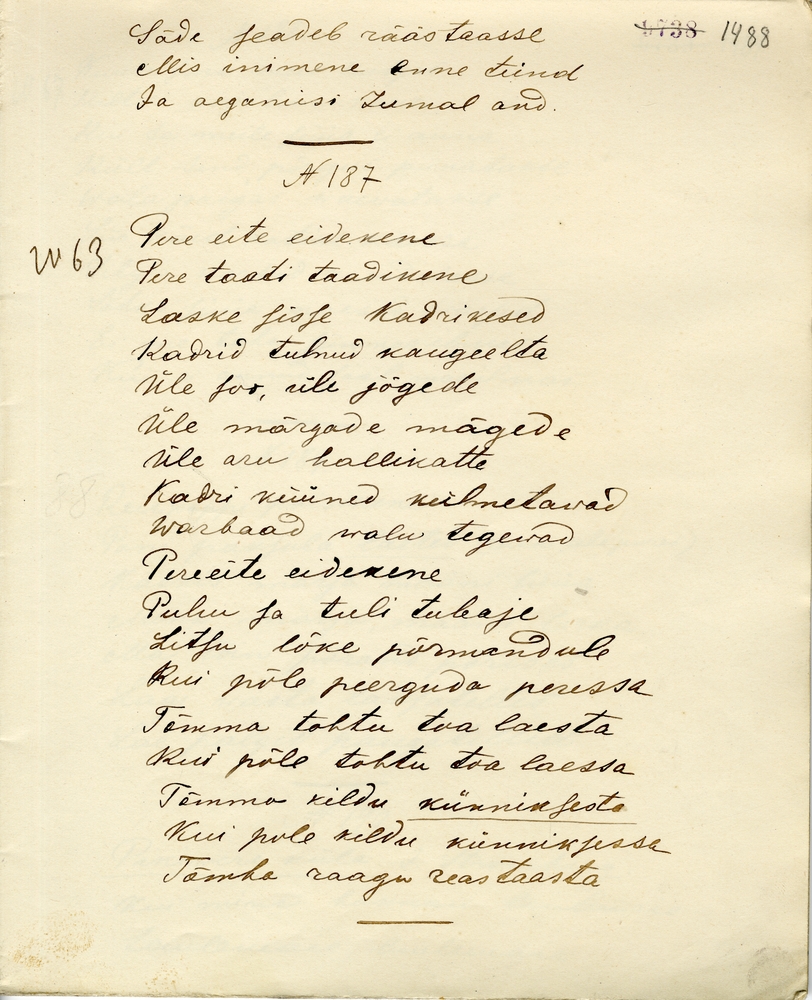 1738 1488
Säde seadeb räästaasse
Mis inimene enne teind
Ja aeganiisi Jumal and.
N 187
63
Pere eite eidekene
Pere taati taadikene
Laske sisse Kadrikesed
Kadrid tulnud kaugeelta
Üle soo, üle jõgede
Üle märgade mägede
Üle aru hallikatte
Kadri küüned külmetawad
Warbaad walu tegewad
Pereeite eidekene
Puhu sa tuli tubaje
Litsu lõke põrmandule
Kui põle peerguda peressa
Tõmma tohtu toa laesta
Kui põle tohtu toa laessa
Tõmma kildu künniksesta
Kui pole kildu künniksessa
Tõmba raagu reastaasta